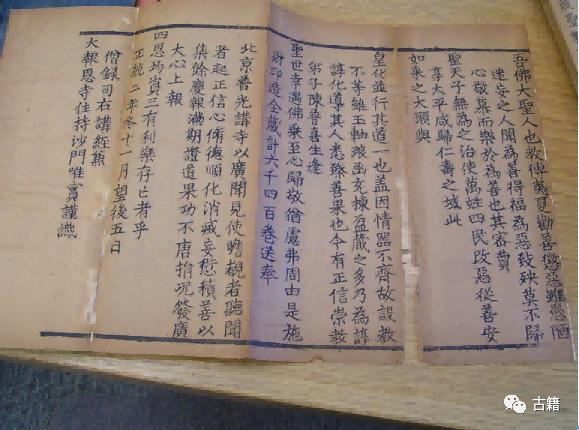 吾佛大聖人也教傳萬夏勸善懲惡雖愚
迷妄之人聞為善得福為惡致殃莫不歸
心敬慕而樂於為善也其密賛
聖天子無為之治使萬姓四民改惡從善安
享太平咸歸仁壽之域此
如來之大願與
皇化並行其道一也蓋因情器不齊故設教
不等雖玉軸琅函充棟盈藏之多乃為諄
諄化導其人悉臻善果也今有正信崇教
弟子陳普喜生逢
聖世幸遇佛乘至心歸敬猶慮弗周由是施
財印造全藏計六千四百卷送奉
北京普光講寺以廣聞見使瞻覩者聽聞
者起正信心脩德順化消烖妄愆積善以
集餘慶報滿期證道果功不唐捐況發廣
大心上報
四恩均資三有利樂存亡者乎
正統二年冬十一月望後五日
僧録司右講經兼
大報恩寺住持沙門唯實謹識
古籍